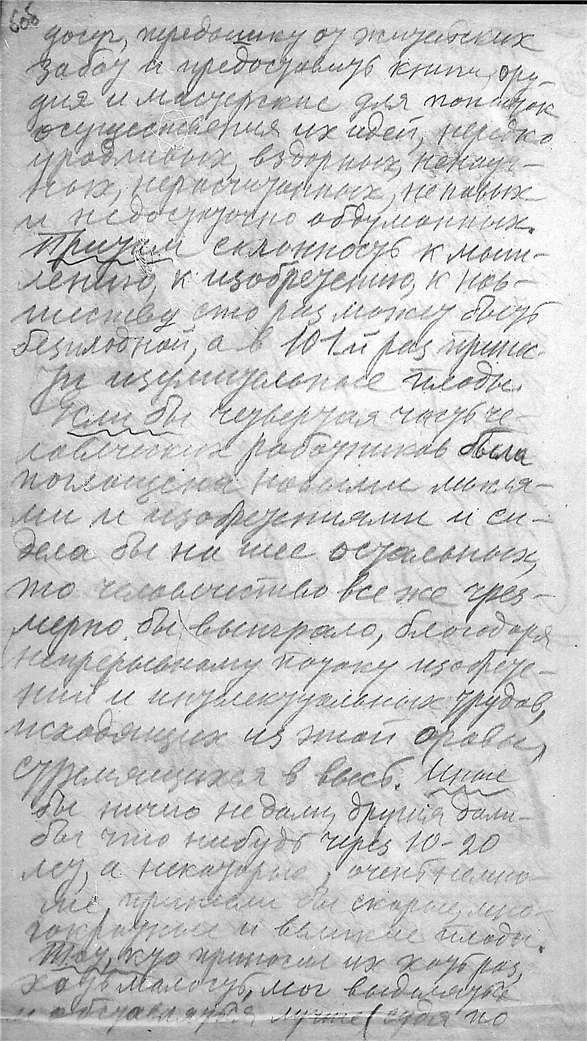 досуг, передышку от житейских
забот и предоставить книги, ору-
дия и мастерские для попыток
осуществления их идей, нередко
уродливых, вздорных, ненауч-
ных, нерасчитанных, неновых
и недостаточно обдуманных.
Притом склонность к мыш-
лению, к изобретению, к нов-
шеству сто раз может быть
безплодной, а в 101й раз прине-
сти изумительные плоды.
Если бы четвертая часть че-
ловеческих работников была
поглощена новыми мысля-
ми и изобретениями и си-
дела бы на шее остальных,
то человечество все же чрез-
мерно бы выиграло, благодаря
непрерывному потоку изобрете-
ний и интеллектуальных трудов,
исходящих из этой оравы,
стремящихся в высь. Иные
бы ничего не дали, другия дали
бы что нибудь через 10-20
лет, а некоторые, очень немно-
гие принесли бы скорые, мно-
гократные и великие плоды.
Тот, кто приносил их хоть раз,
хоть малость, мог выделяться
и обставляться лучше (судя по